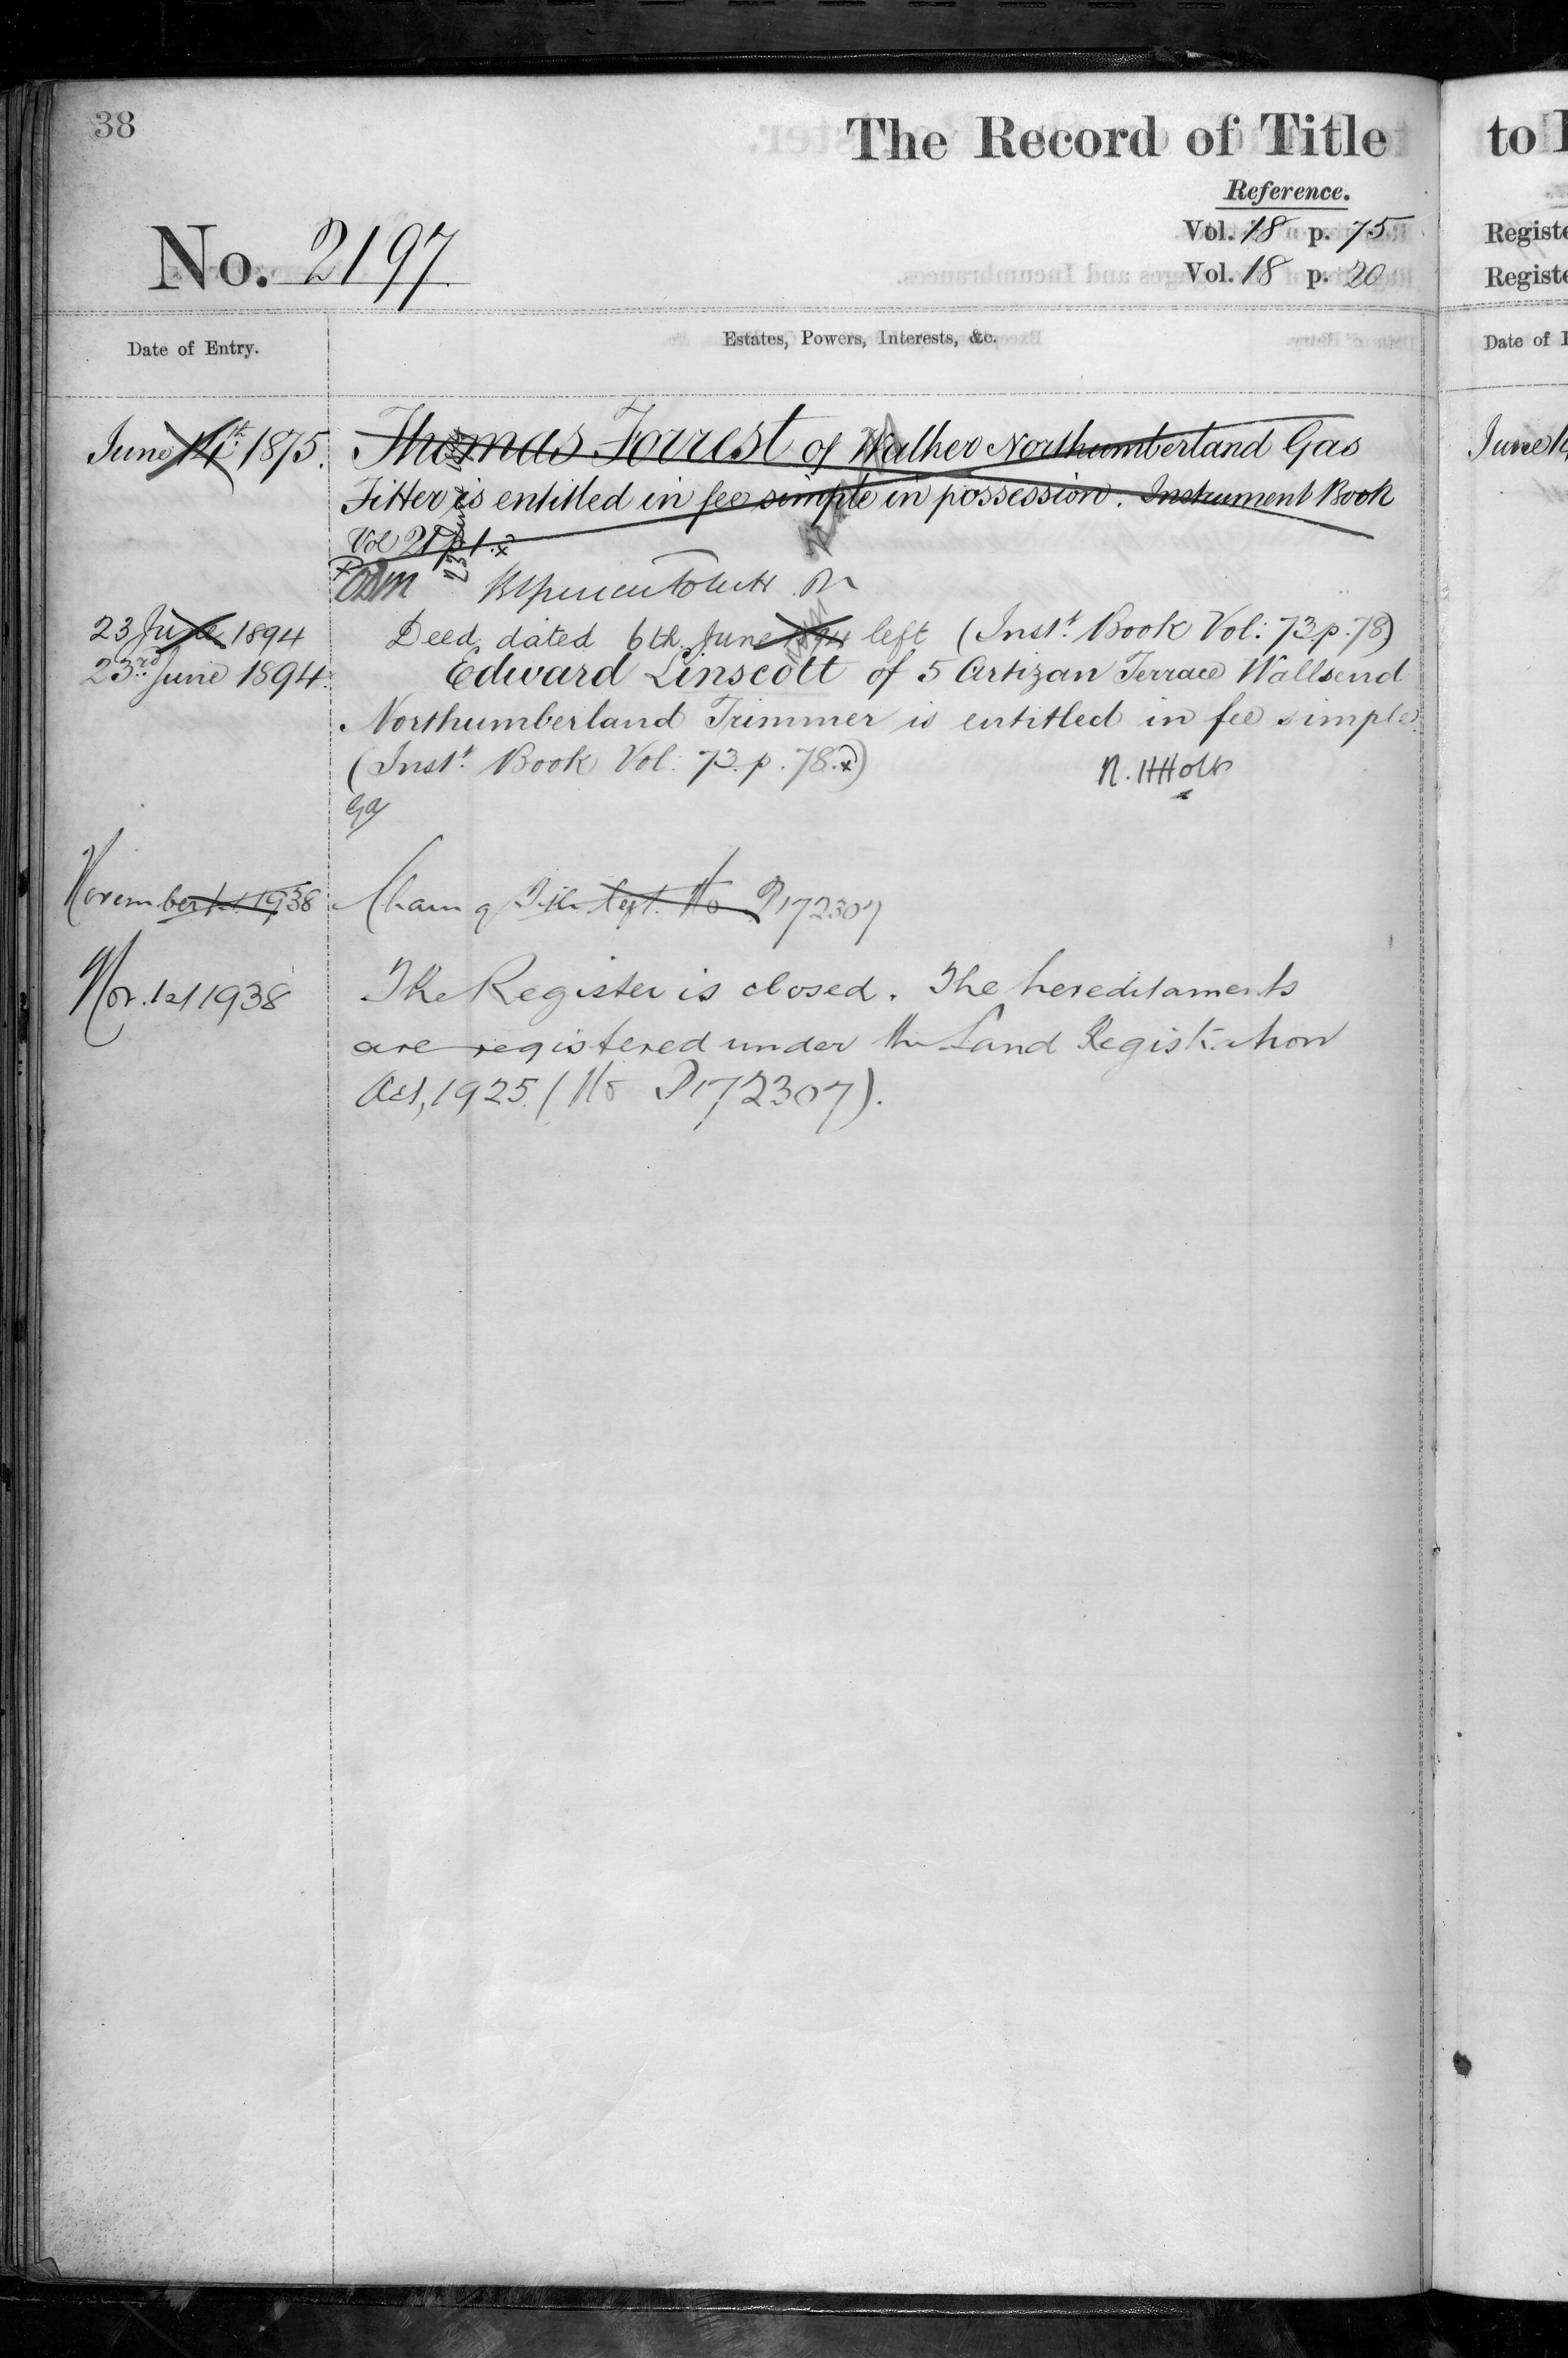 38
The Record of Title
Reference.
No. 2197
Vol. 18 p. 75
Vol. 18 p. 20
Date of Entry.
Estates, Powers, Interests, &c.
June 14th 1875. Thomas Forrest of Walker Northumberland Gas
Fitter is entitled in fee simple in possession. Instrument Book
Vol 21 p 1.
23 June 1894 Deed dated 6th June 1894 left (Inst. Book Vol: 73 p. 78)
23rd June 1894. Edward Linscott of 5 Artizan Terrace Wallsend
Northumberland Trimmer is entitled in fee simple
(Inst. Book Vol. 73. p. 78. x)
November 1st 1938 No P172307
Nov. 1st 1938 The Register is closed. The hereditaments
are registered under the Land Registration
Act, 1925. (No P172307).
to
Registe
Registe
Date of
June 14